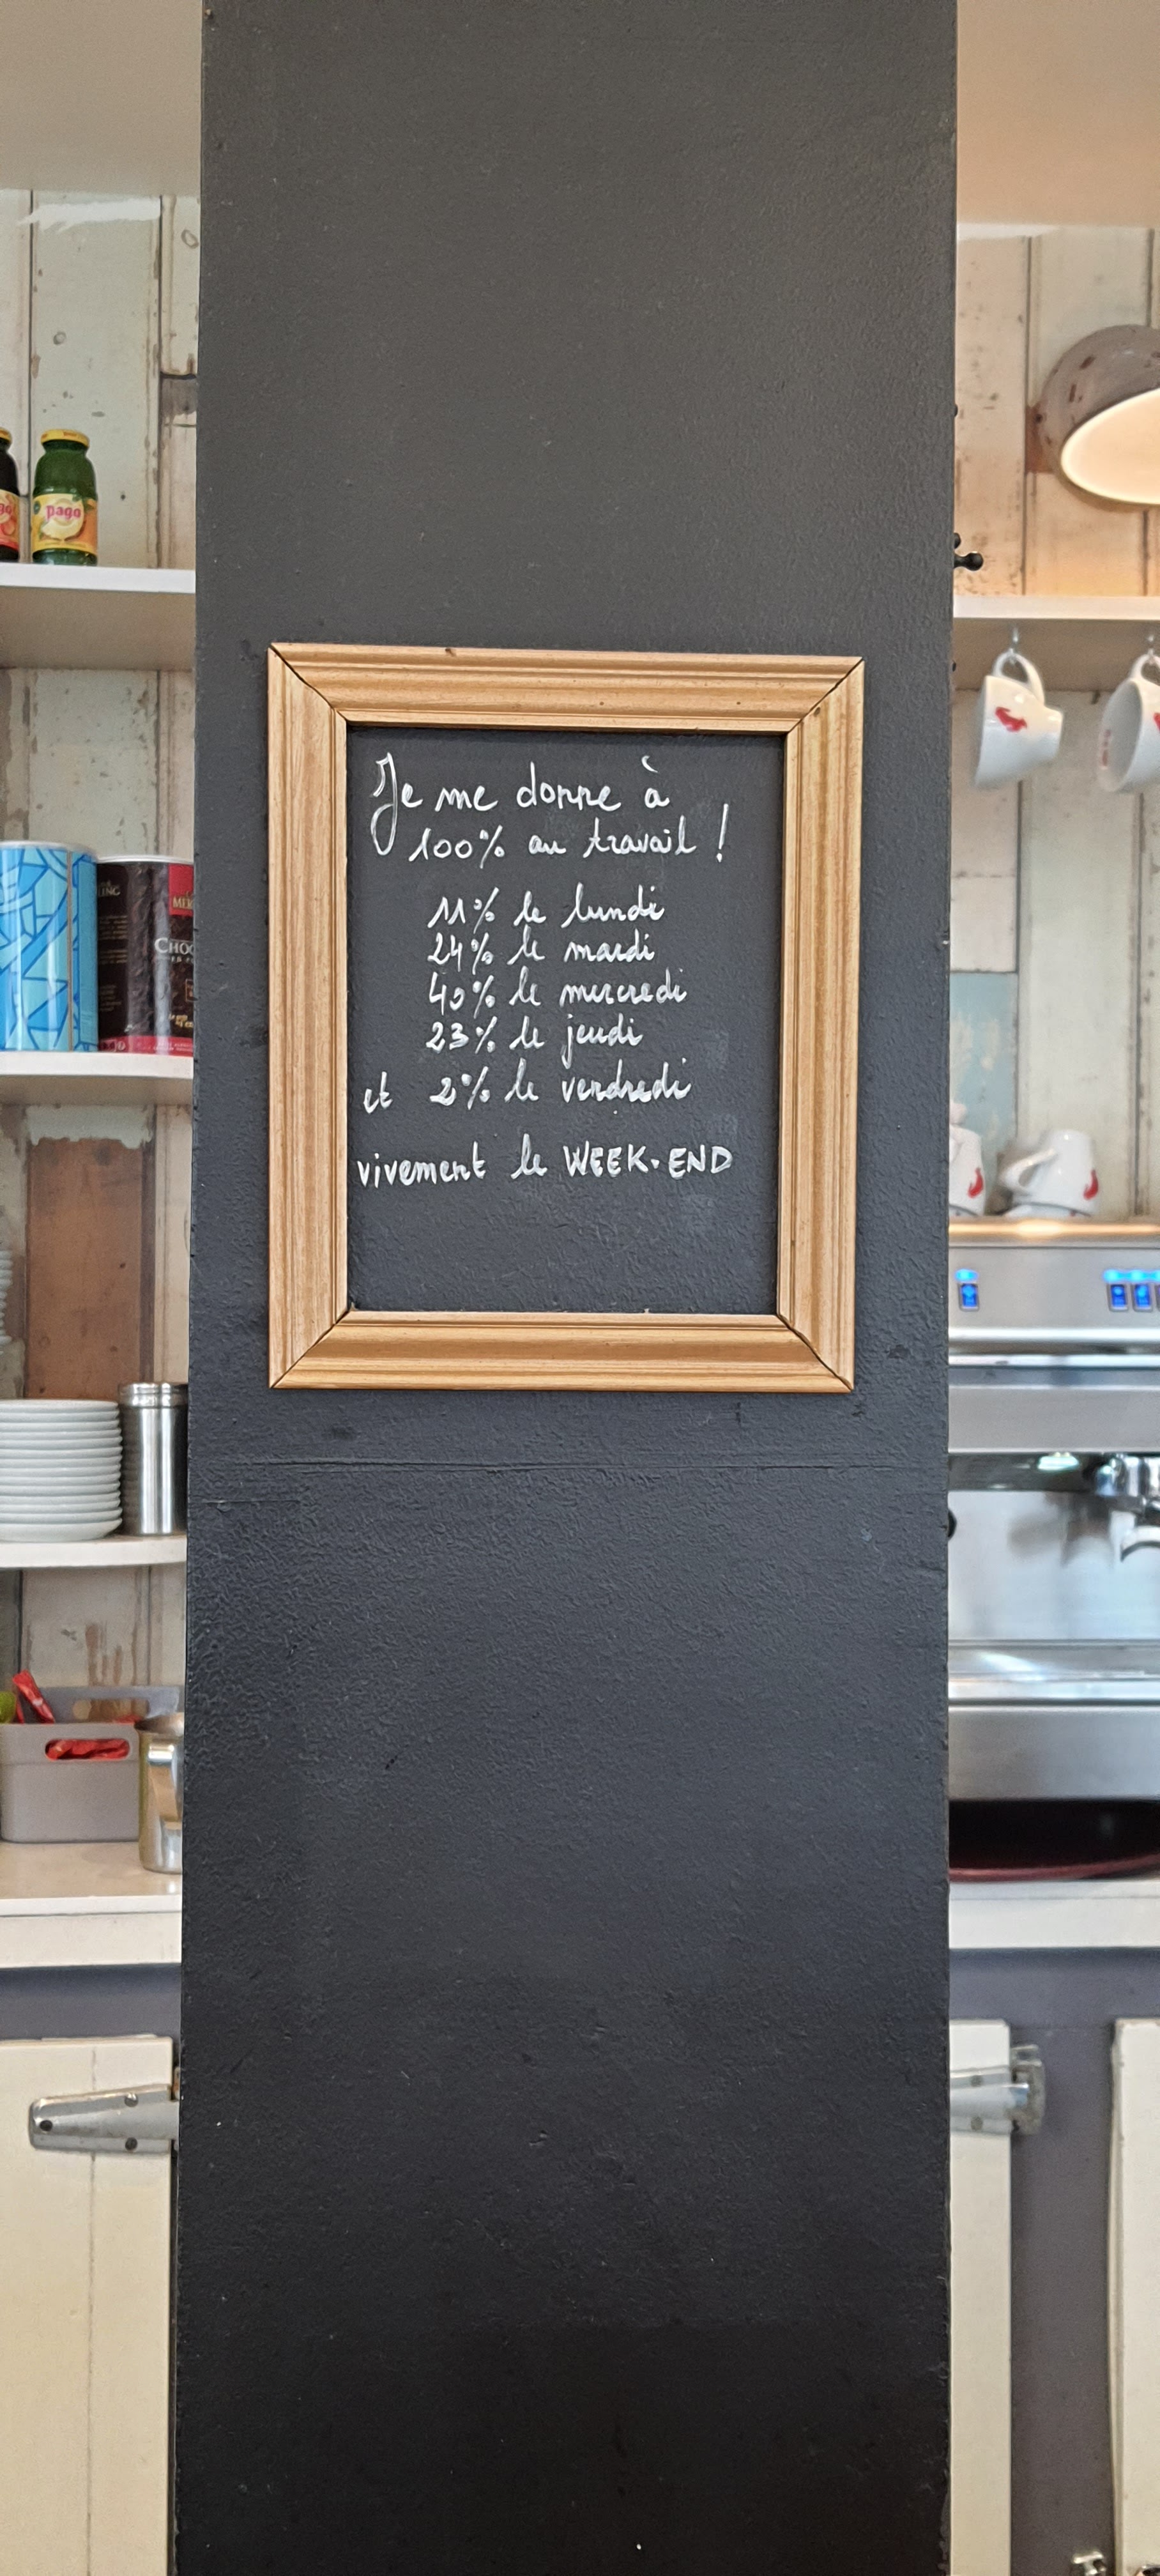 pago
Je me donne à
100% au travail !
11% le lundi
24% le mardi
40% le mercredi
23% le jeudi
et 2% le vendredi
vivement le WEEK-END